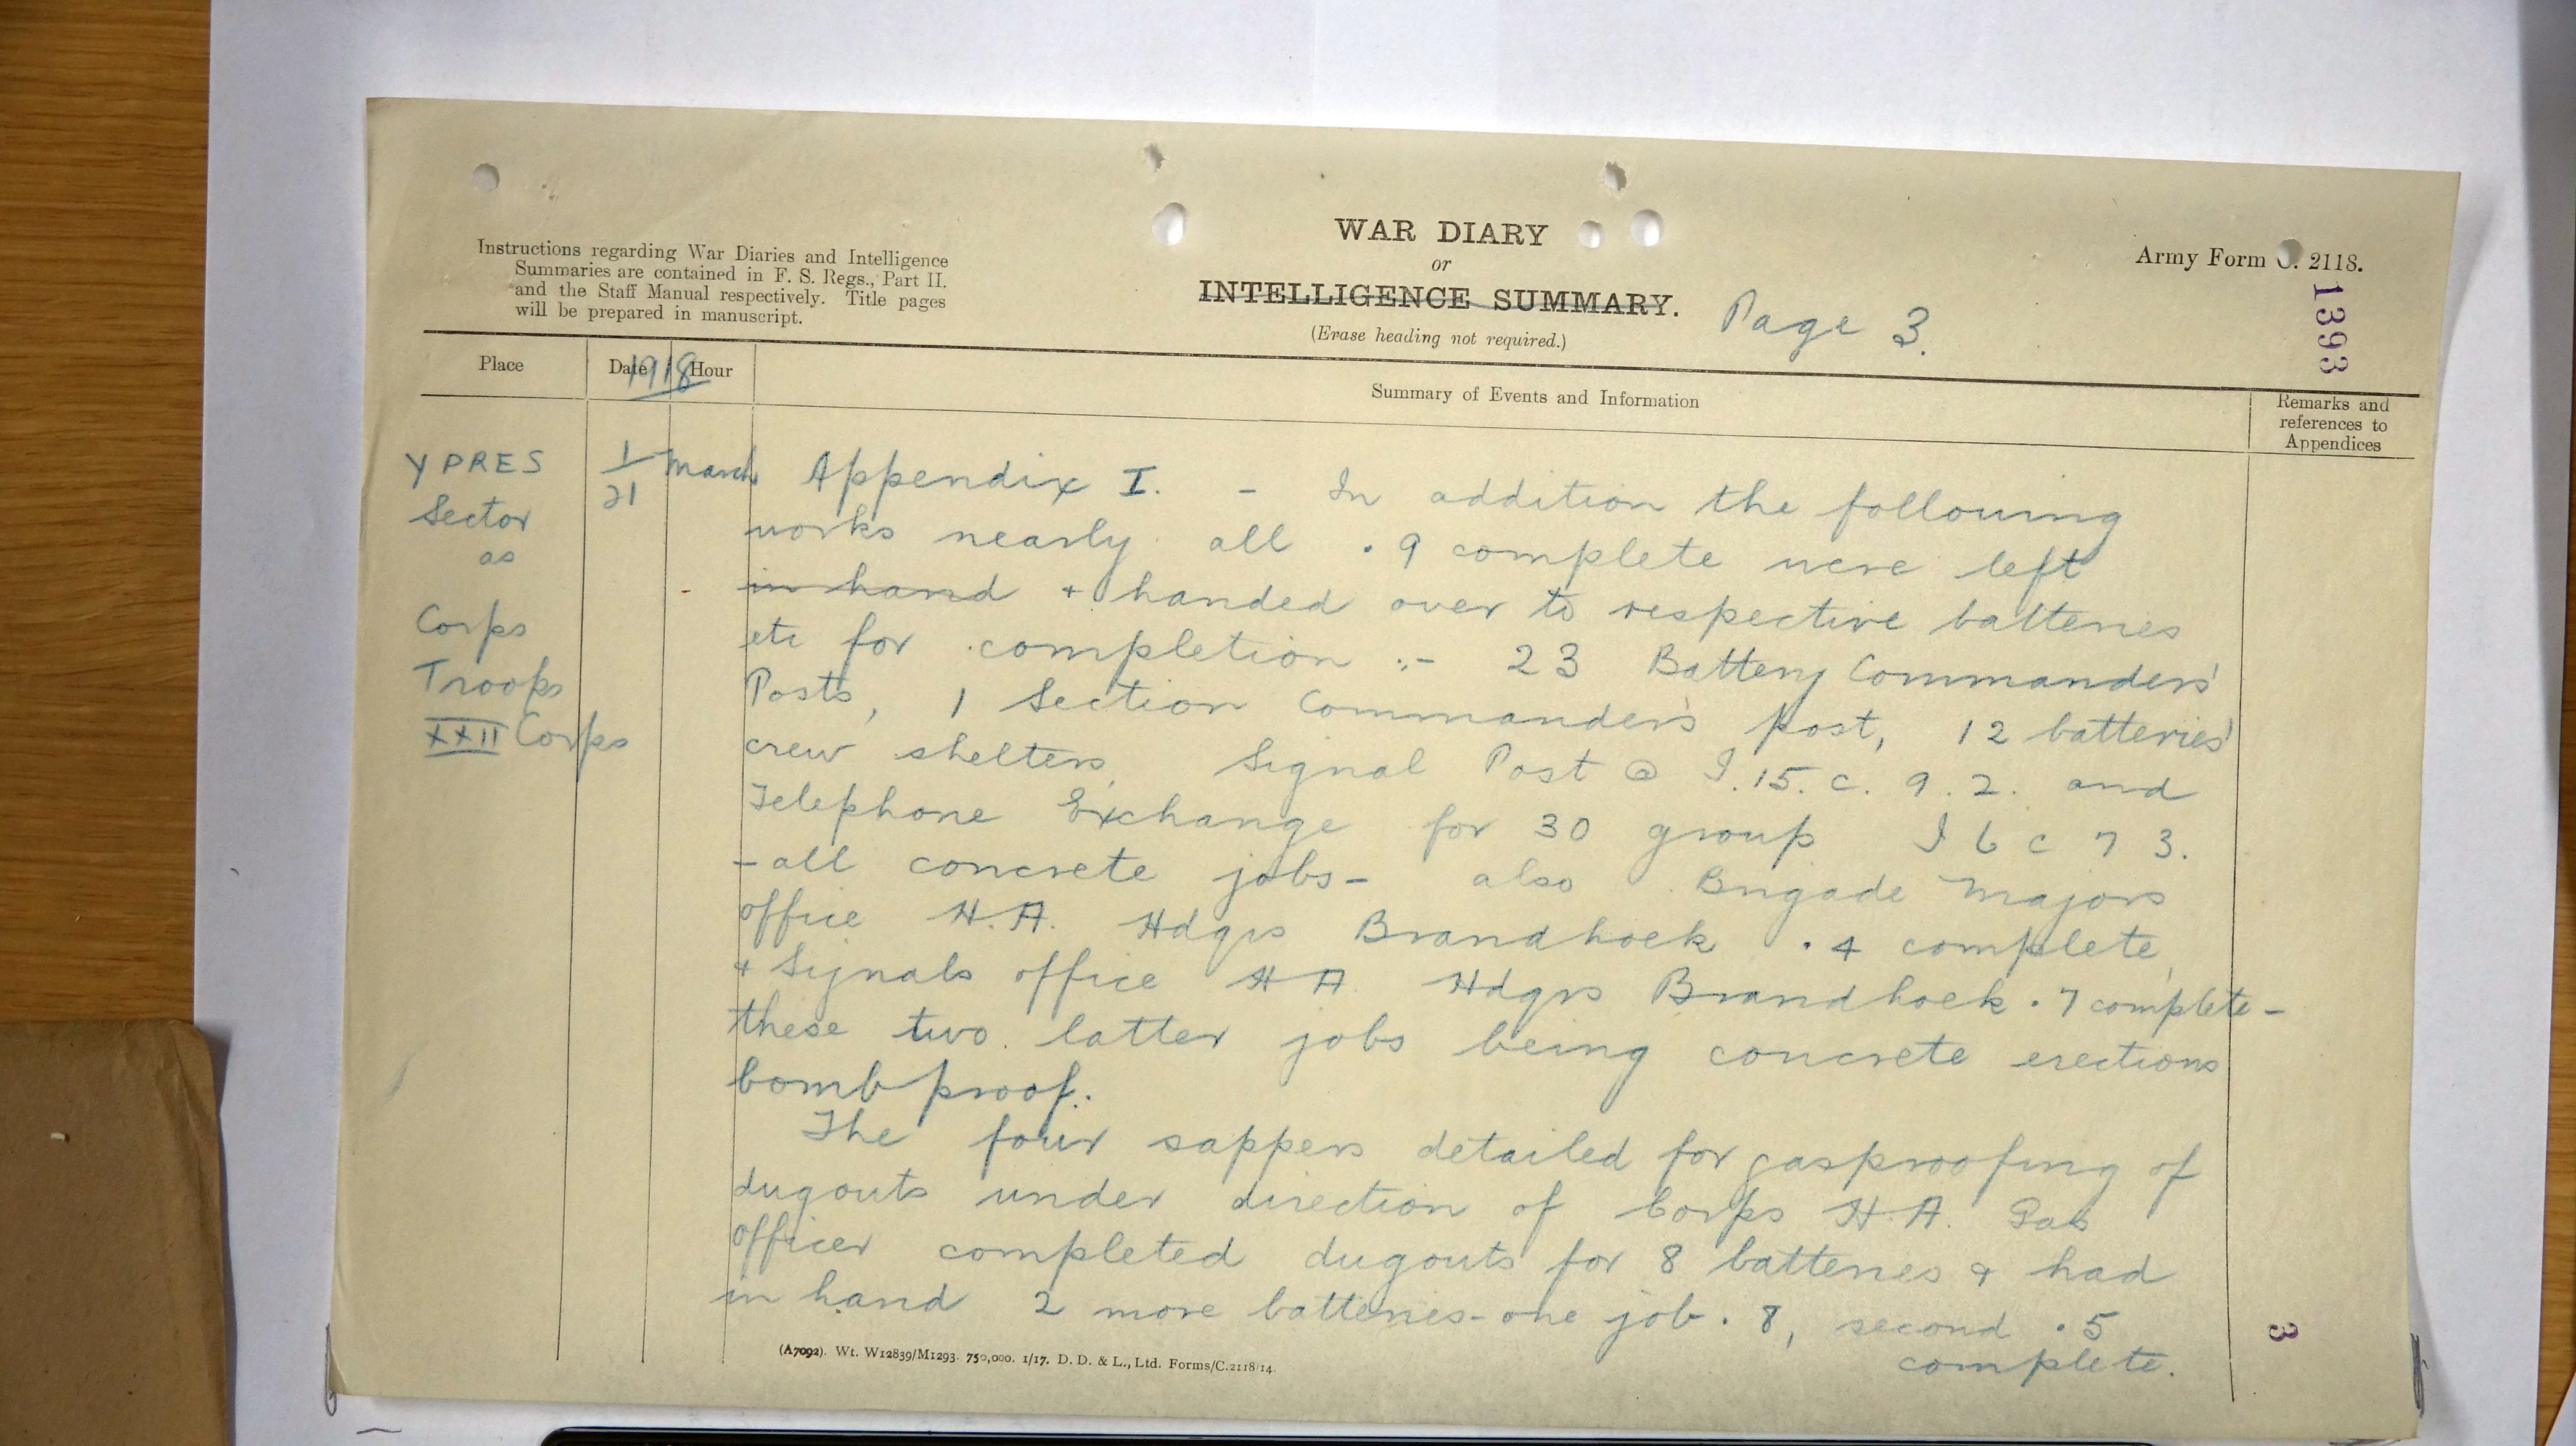 Instructions regarding War Diaries and Intelligence
Summaries are contained in F. S. Regs., Part II.
and the Staff Manual respectively. Title pages
will be prepared in manuscript.
WAR DIARY
or
INTELLIGENCE SUMMARY.
(Erase heading not required.)
Page 3.
Army Form C. 2118.
1393
Place
Date
1918
Hour
Summary of Events and Information
Remarks and
references to
Appendices
YPRES
Sector
as
Corps
Troops
XXII Corps
1/21 March
Appendix I. - In addition the following
works nearly all .9 complete were left
in hand + handed over to respective batteries
etc for completion :- 23 Battery Commanders'
Posts, 1 Section Commander's post, 12 batteries'
crew shelters, Signal Post @ I.15.c.9.2. and
Telephone Exchange for 30 group I 6 c 7 3.
- all concrete jobs - also Brigade Majors
office H.A. Hdqrs Brandhoek .4 complete,
+ Signals office H A. Hdqrs Brandhoek .7 complete -
these two latter jobs being concrete erections
bombproof.
The four sappers detailed for gasproofing of
dugouts under direction of Corps H.A. Gas
officer completed dugouts for 8 batteries + had
in hand 2 more batteries - one job .8, second .5
complete.
(A7092). Wt. W12839/M1293. 750,000. 1/17. D. D. & L., Ltd. Forms/C.2118/14.
3